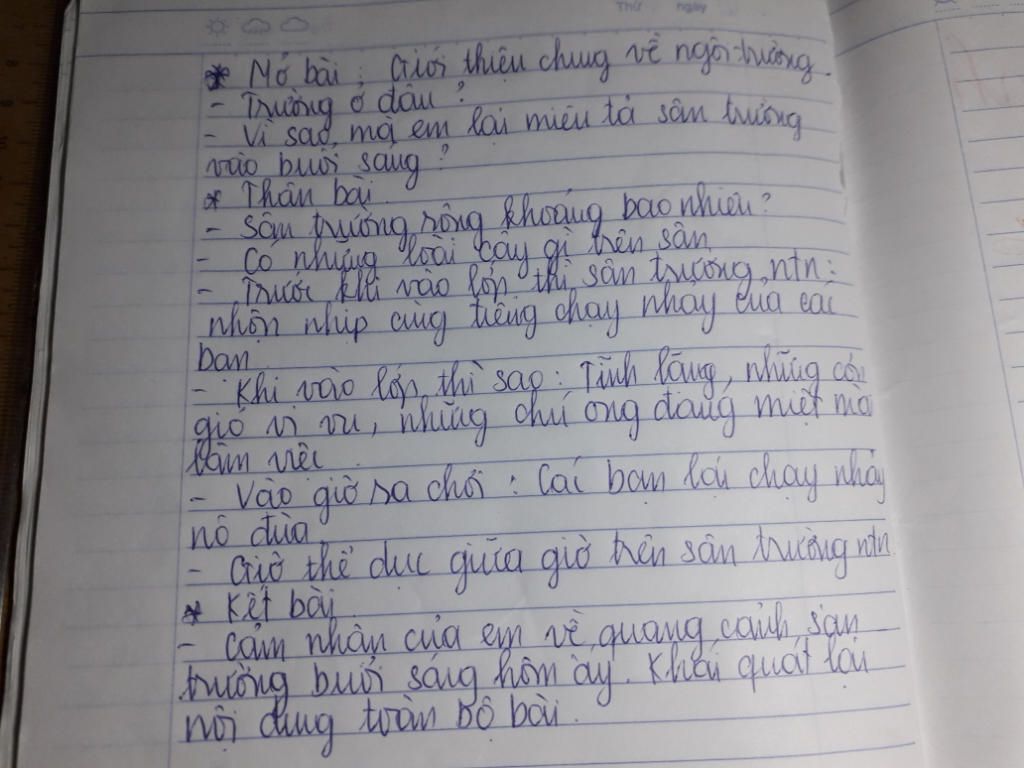 Thứ ngày
* Mở bài : Giới thiệu chung về ngôi trường.
- Trường ở đâu ?
- Vì sao mà em lại miêu tả sân trường
vào buổi sáng ?
* Thân bài.
- Sân trường rộng khoảng bao nhiêu ?
- Có những loài cây gì trên sân
- Trước khi vào lớp thì sân trường ntn :
nhộn nhịp cùng tiếng chạy nhảy của các
bạn
- Khi vào lớp thì sao : Tĩnh lặng, những cơn
gió vi vu, những chú ong đang miệt mài
làm việc.
- Vào giờ ra chơi : Các bạn lại chạy nhảy
nô đùa.
- Giờ thể dục giữa giờ trên sân trường ntn.
* Kết bài.
- Cảm nhận của em về quang cảnh sân
trường buổi sáng hôm ấy. Khái quát lại
nội dung toàn bộ bài.